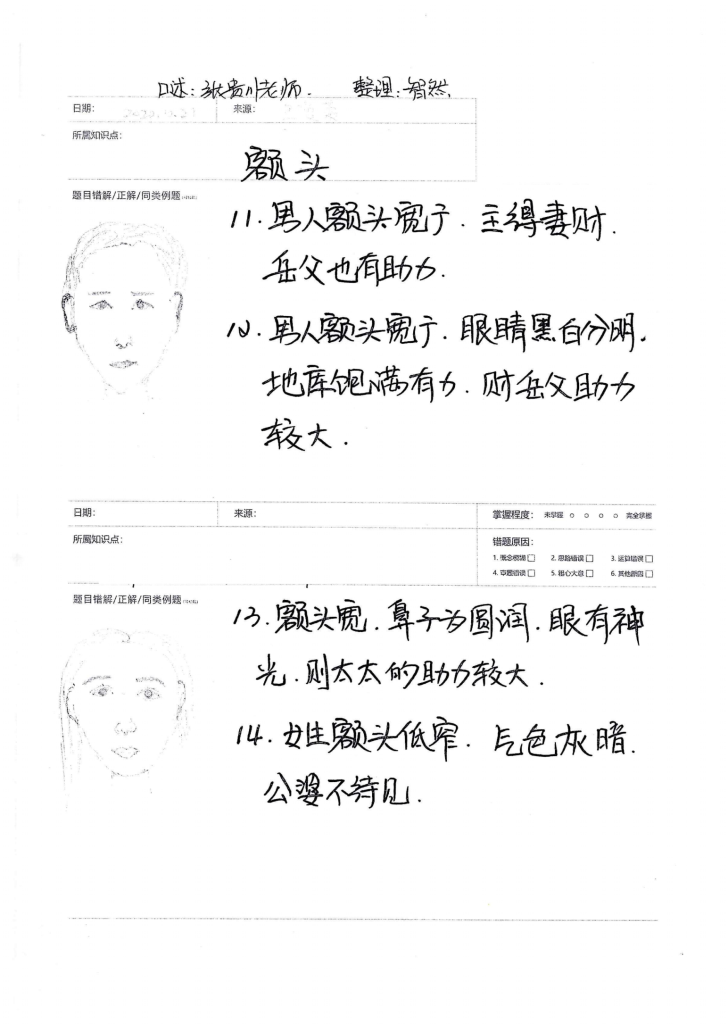 口述:张贵川老师. 整理:智然.
日期: 来源:
所属知识点:
额头
题目错解/正解/同类例题
11.男人额头宽广.主得妻财.
岳父也有助力.
12.男人额头宽广.眼睛黑白分明.
地库饱满有力.财岳父助力
较大.
日期: 来源: 掌握程度: 未掌握 ○ ○ ○ ○ 完全掌握
所属知识点: 错题原因:
1. 概念模糊 □ 2. 思路错误 □ 3. 运算错误 □
4. 审题错误 □ 5. 粗心大意 □ 6. 其他原因 □
题目错解/正解/同类例题
13.额头宽.鼻子为圆润.眼有神
光.则太太的助力较大.
14.女生额头低窄.气色灰暗.
公婆不待见.